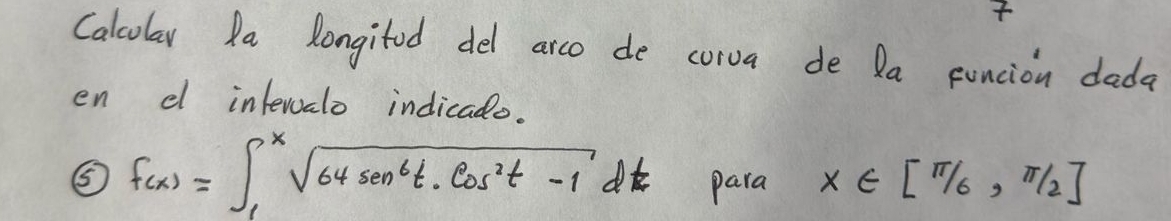 7
Calcular la longitud del arco de curva de la función dada
en el intervalo indicado.
⑤ f(x) = ∫₁ˣ √(64 sen⁶t . Cos²t - 1) dt para x ∈ [π/6 , π/2]